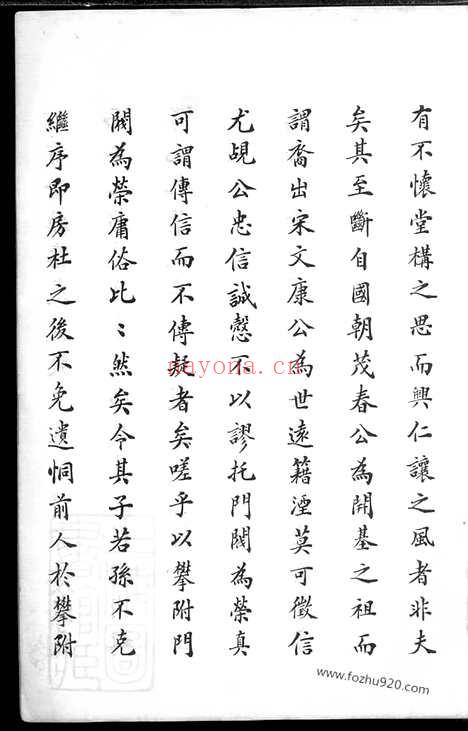 有不懷堂構之思而興仁讓之風者非夫
矣其至斷自國朝茂春公為開基之祖而
謂裔出宋文康公為世遠籍湮莫可徵信
尤覘公忠信誠慤不以謬托門閥為榮真
可謂傳信而不傳疑者矣嗟乎以攀附門
閥為榮庸俗比〻然矣令其子若孫不克
繼序即房杜之後不免遺恫前人於攀附
nayona.cn
www.fozhu920.com